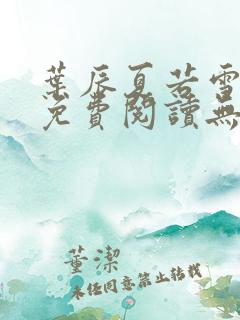 葉辰夏若雪
免費閱讀無
董潔
未經同意禁止轉載